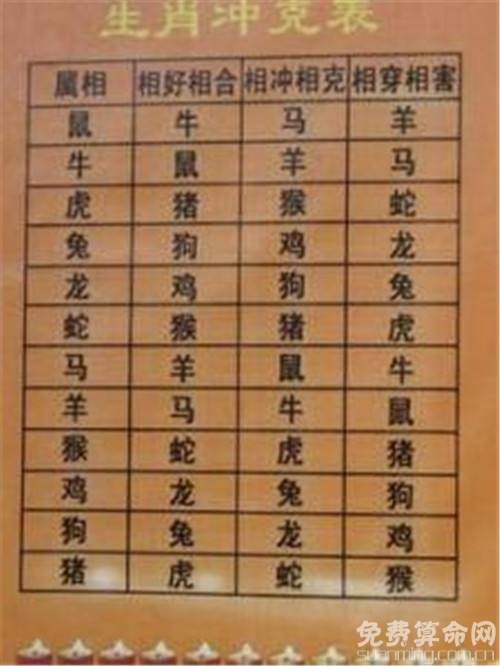 生肖冲克表
属相 相好相合 相冲相克 相穿相害
鼠 牛 马 羊
牛 鼠 羊 马
虎 猪 猴 蛇
兔 狗 鸡 龙
龙 鸡 狗 兔
蛇 猴 猪 虎
马 羊 鼠 牛
羊 马 牛 鼠
猴 蛇 虎 猪
鸡 龙 兔 狗
狗 兔 龙 鸡
猪 虎 蛇 猴
免费算命网
suanming.com.cn